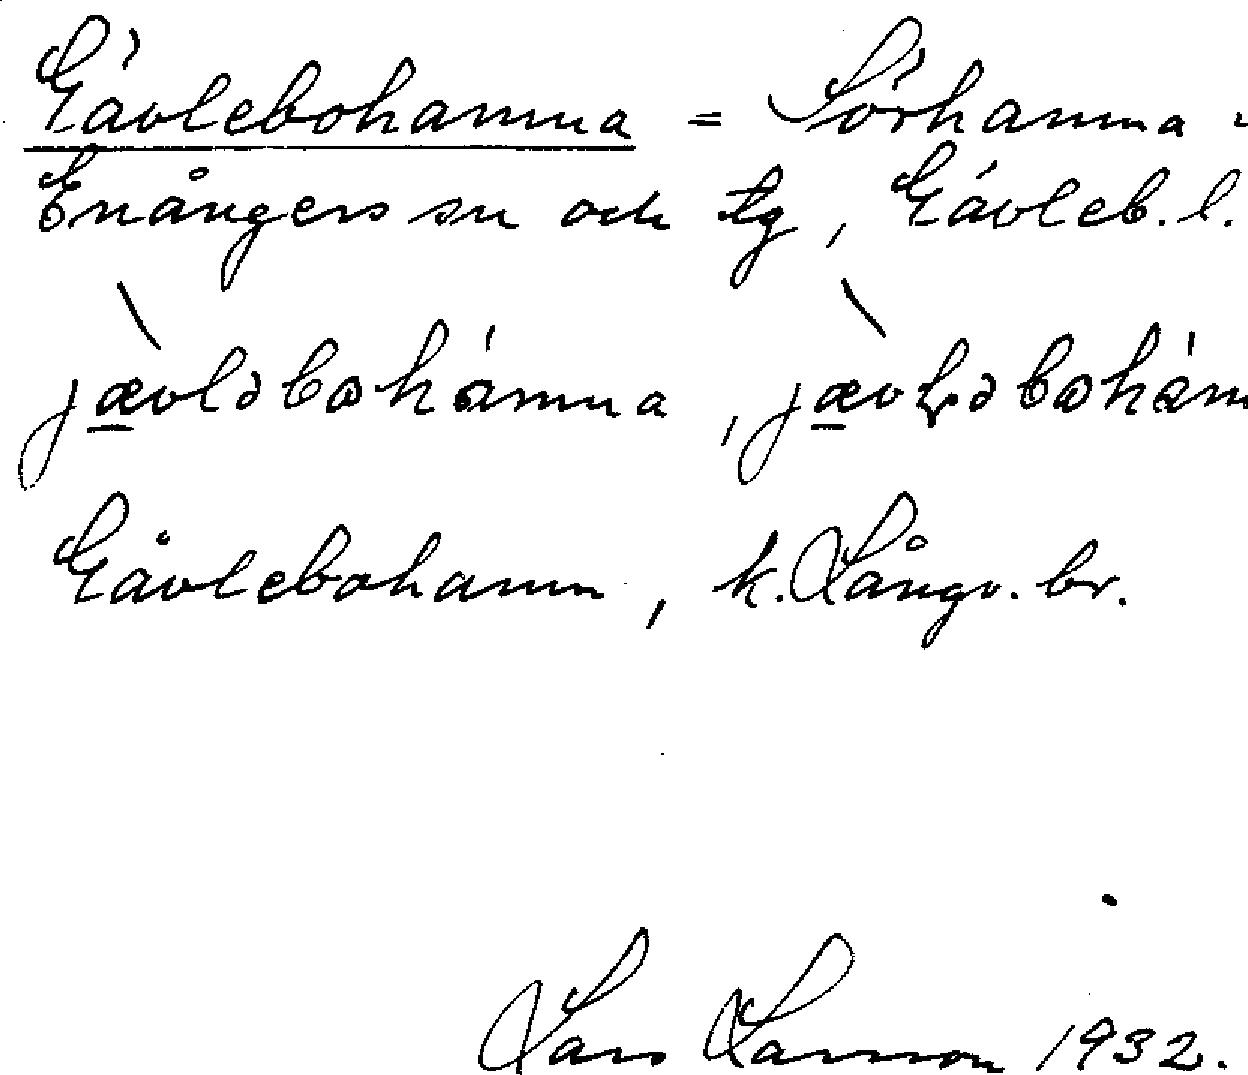 Gävlebohamna = Sörhamna -
Enångers sn och tg, Gävleb. l.
jævləbohámna, jævḷəbohám
Gävlebohamn, k. Långv. br.
Lars Larsson 1932.